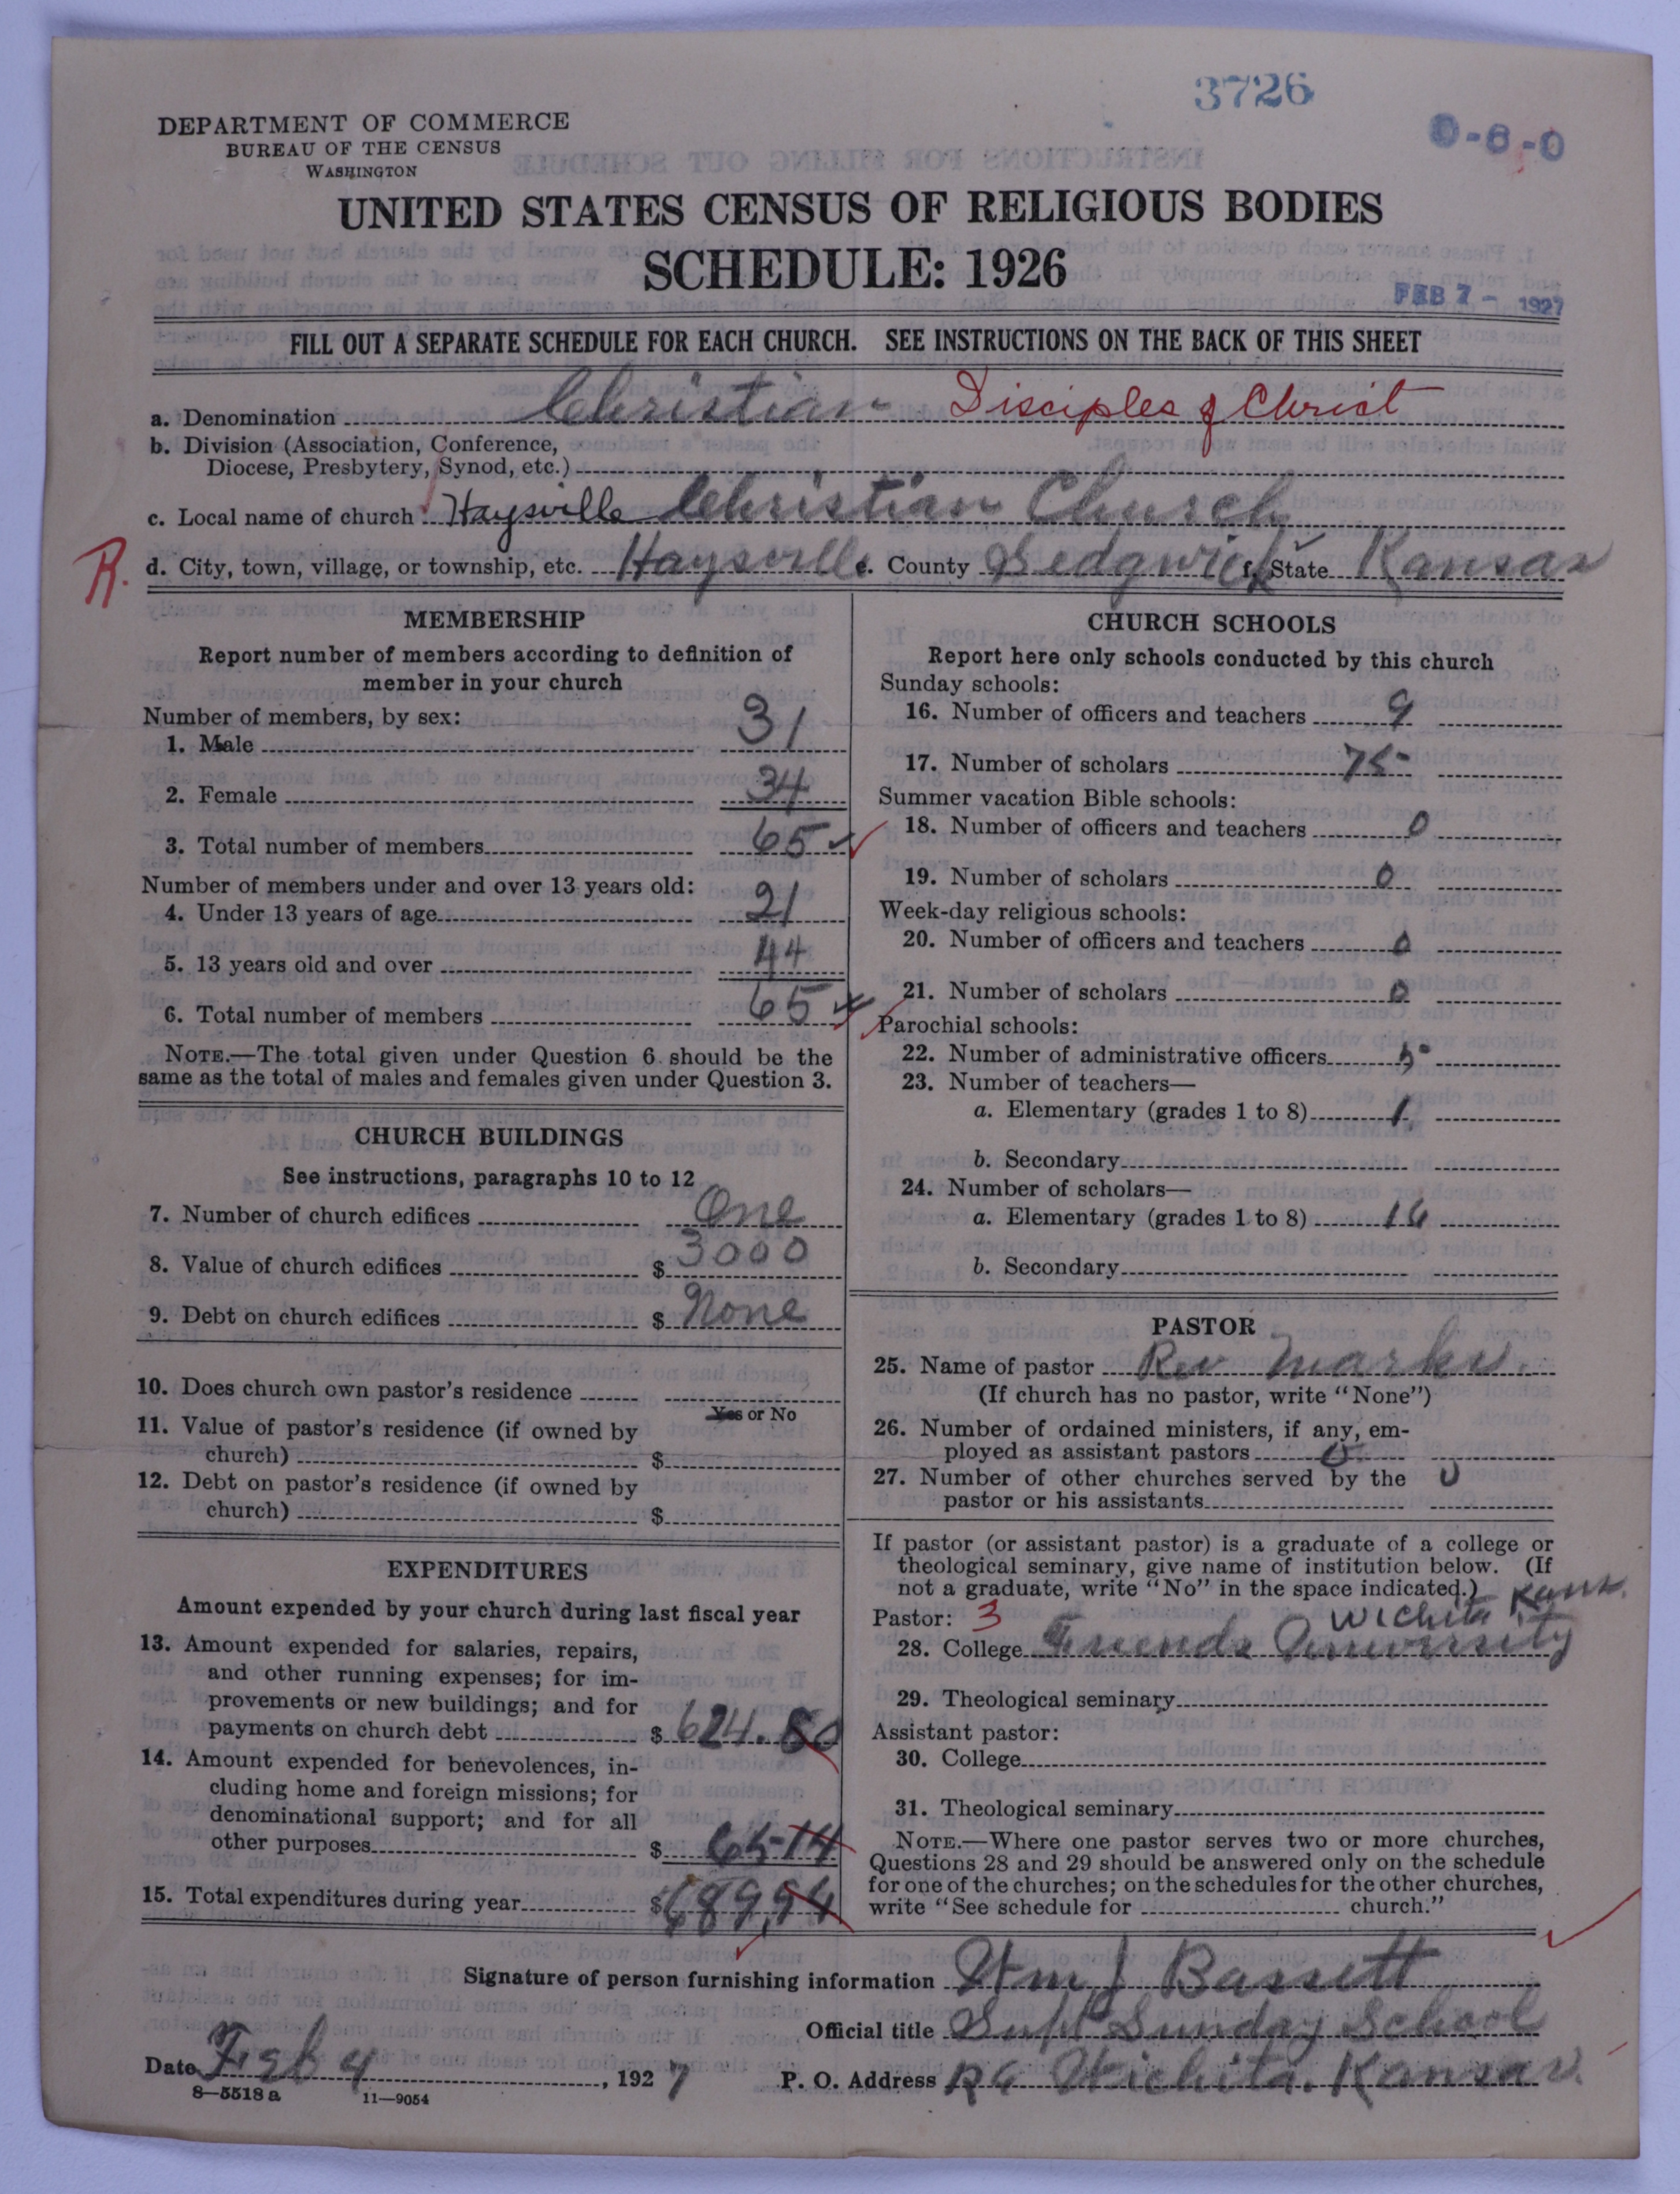 3726
0-6-0
DEPARTMENT OF COMMERCE
BUREAU OF THE CENSUS
WASHINGTON
UNITED STATES CENSUS OF RELIGIOUS BODIES
SCHEDULE: 1926
FEB 7 - 1927
FILL OUT A SEPARATE SCHEDULE FOR EACH CHURCH. SEE INSTRUCTIONS ON THE BACK OF THIS SHEET
a. Denomination Christian Disciples of Christ
b. Division (Association, Conference,
Diocese, Presbytery, Synod, etc.)
c. Local name of church Haysville Christian Church
R. d. City, town, village, or township, etc. Haysville e. County Sedgwick f. State Kansas
MEMBERSHIP
Report number of members according to definition of
member in your church
Number of members, by sex:
1. Male 31
2. Female 34
3. Total number of members 65
Number of members under and over 13 years old:
4. Under 13 years of age 21
5. 13 years old and over 44
6. Total number of members 65
NOTE.—The total given under Question 6 should be the
same as the total of males and females given under Question 3.
CHURCH BUILDINGS
See instructions, paragraphs 10 to 12
7. Number of church edifices One
8. Value of church edifices $ 3000
9. Debt on church edifices $ None
10. Does church own pastor's residence
Yes or No
11. Value of pastor's residence (if owned by
church) $
12. Debt on pastor's residence (if owned by
church) $
EXPENDITURES
Amount expended by your church during last fiscal year
13. Amount expended for salaries, repairs,
and other running expenses; for im-
provements or new buildings; and for
payments on church debt $ 624.80
14. Amount expended for benevolences, in-
cluding home and foreign missions; for
denominational support; and for all
other purposes $ 65-14
15. Total expenditures during year $ 689,94
CHURCH SCHOOLS
Report here only schools conducted by this church
Sunday schools:
16. Number of officers and teachers 9
17. Number of scholars 75
Summer vacation Bible schools:
18. Number of officers and teachers 0
19. Number of scholars 0
Week-day religious schools:
20. Number of officers and teachers 0
21. Number of scholars 0
Parochial schools:
22. Number of administrative officers
23. Number of teachers—
a. Elementary (grades 1 to 8) 1
b. Secondary
24. Number of scholars—
a. Elementary (grades 1 to 8) 16
b. Secondary
PASTOR
25. Name of pastor Rev Marks
(If church has no pastor, write "None")
26. Number of ordained ministers, if any, em-
ployed as assistant pastors 0
27. Number of other churches served by the 0
pastor or his assistants
If pastor (or assistant pastor) is a graduate of a college or
theological seminary, give name of institution below. (If
not a graduate, write "No" in the space indicated.)
Pastor: 3 Wichita Kans.
28. College Friends University
29. Theological seminary
Assistant pastor:
30. College
31. Theological seminary
NOTE.—Where one pastor serves two or more churches,
Questions 28 and 29 should be answered only on the schedule
for one of the churches; on the schedules for the other churches,
write "See schedule for church."
Signature of person furnishing information Wm J Bassett
Official title Supt Sunday School
Date Feb 4, 1927 P. O. Address R6 Wichita. Kansas.
8—5518 a 11—9054